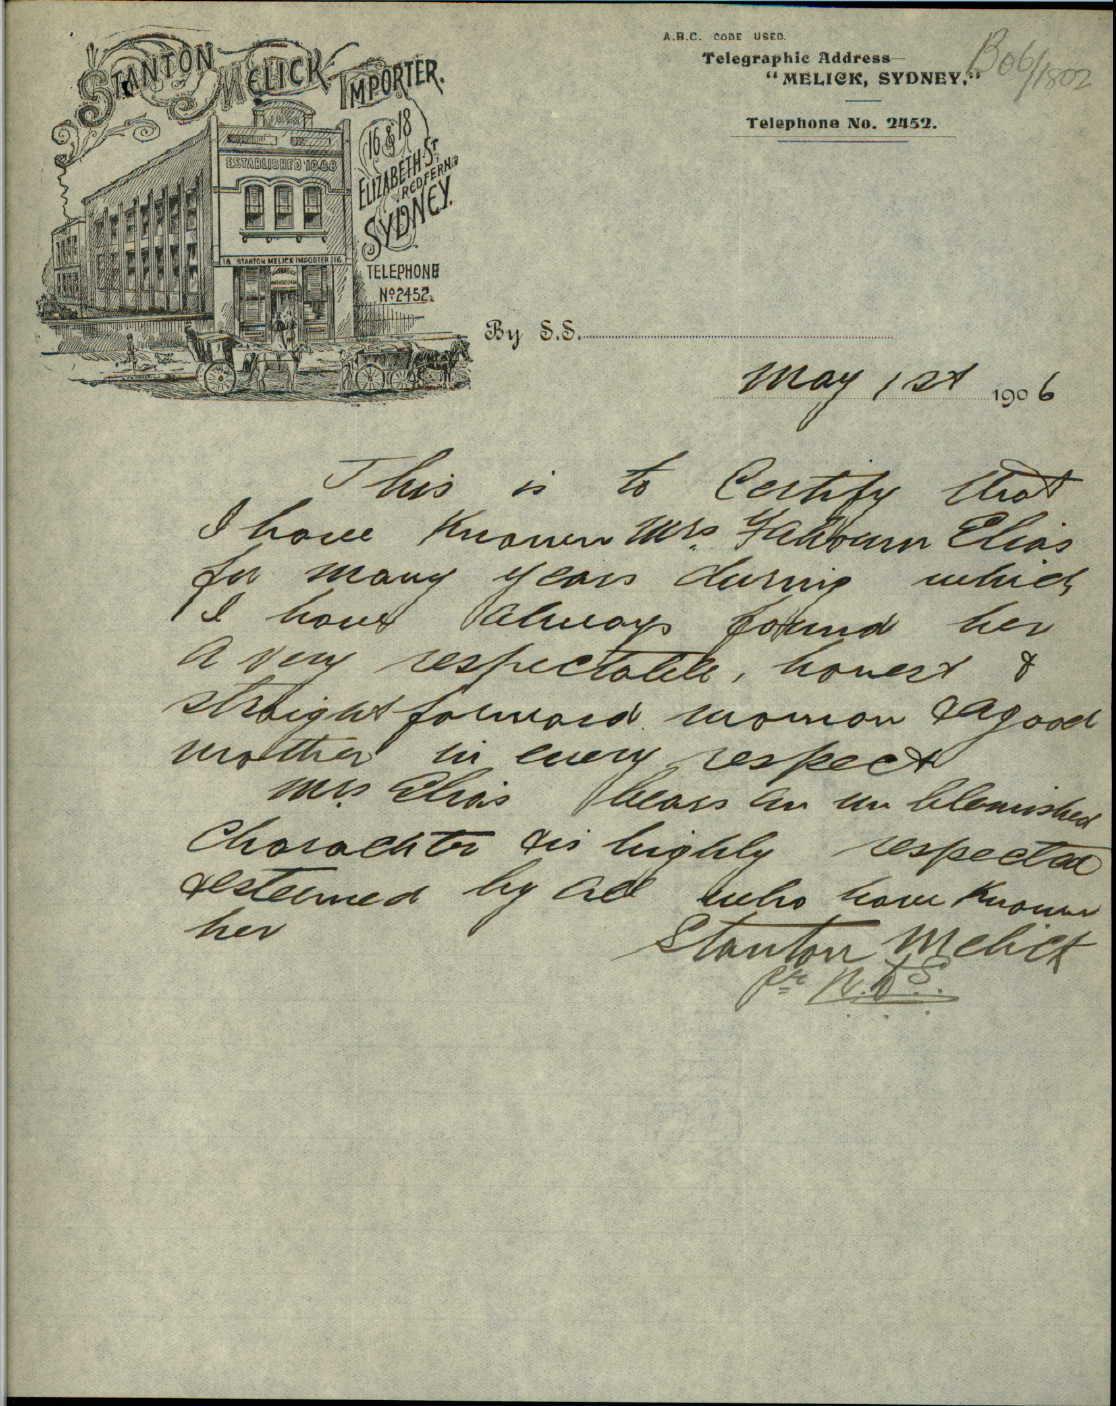 STANTON MELICK IMPORTER.
16 & 18
ELIZABETH ST
REDFERN
SYDNEY.
TELEPHONE
No 2452.
ESTABLISHED 1888
18 STANTON MELICK IMPORTER 16
A.B.C. CODE USED.
Telegraphic Address—
"MELICK, SYDNEY."
Telephone No. 2452.
B06/1802
By S.S.
May 1st 1906
This is to Certify that
I have Known Mrs. Elias
for many years during which
I have always found her
a very respectable, honest &
straight forward woman & a good
mother in every respect
Mrs. Elias bears an un blemished
Charachter & is highly respected
& esteemed by all who have Known
her
Stanton Melick
pr N.D.S.